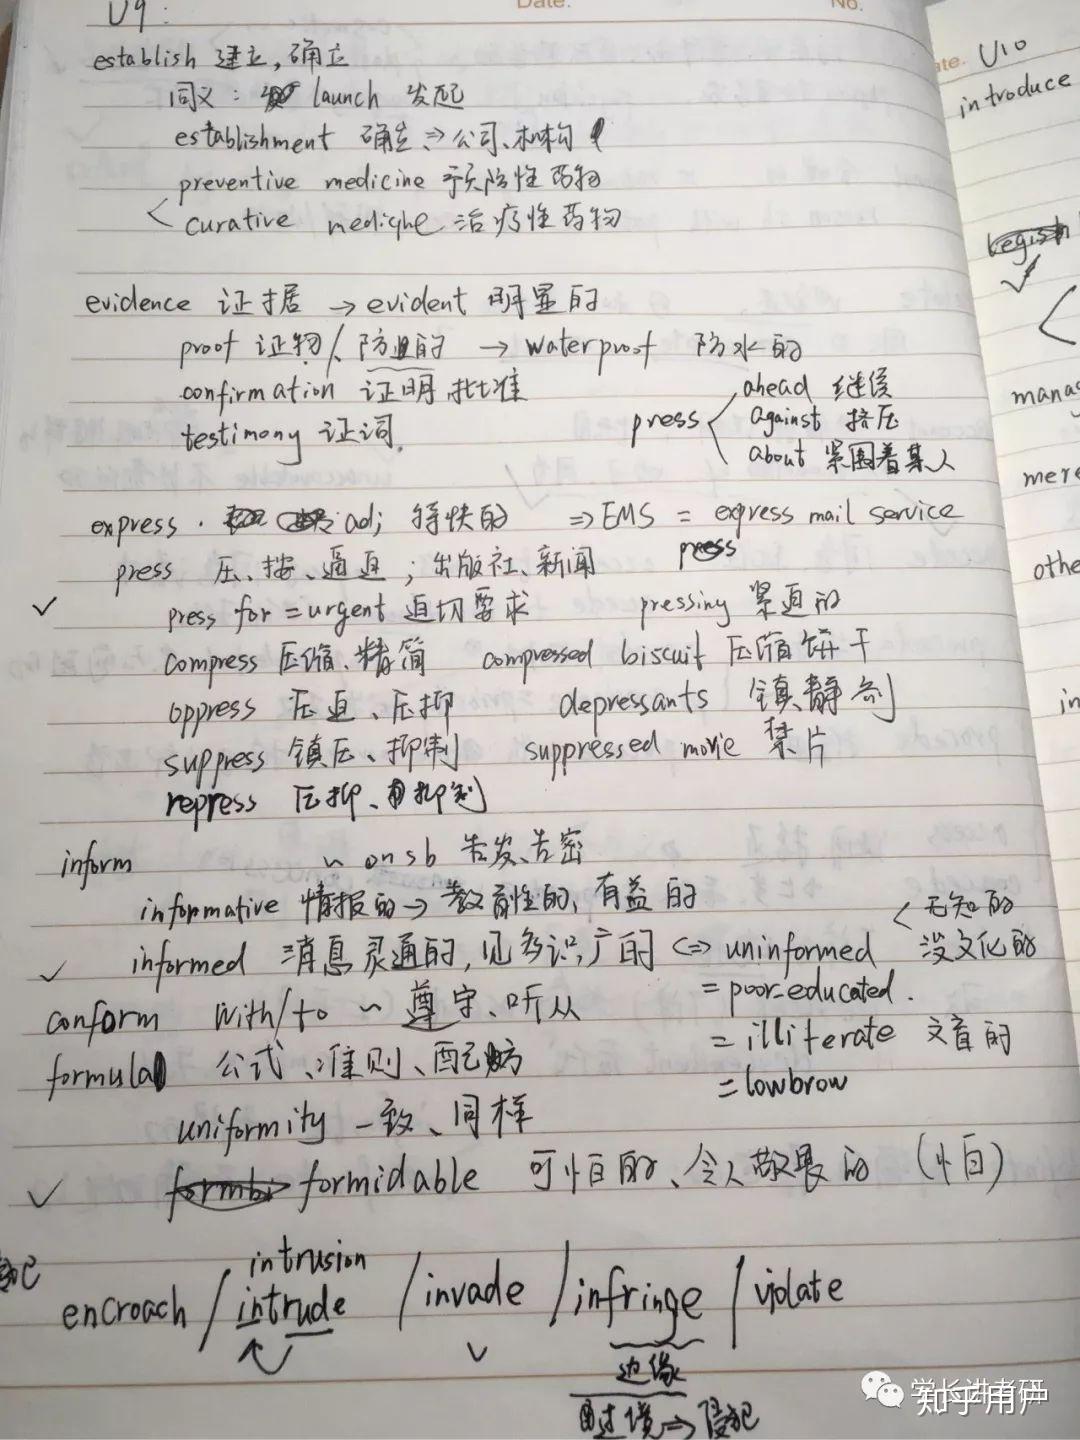 U9.
Date.
No.
establish 建立,确立
同义: launch 发起
establishment 确立 ⇒ 公司、机构
preventive medicine 预防性药物
< curative medicine 治疗性药物
evidence 证据 → evident 明显的
proof 证物/防…的 → waterproof 防水的
confirmation 证明,批准
testimony 证词.
press
ahead 继续
against 挤压
about 紧围着某人
express . adj 特快的 ⇒ EMS = express mail service
press 压、按、逼迫; 出版社、新闻
press
✓ press for = urgent 迫切要求 pressing 紧迫的
compress 压缩、精简 compressed biscuit 压缩饼干
oppress 压迫、压抑 depressants 镇静剂
suppress 镇压、抑制 suppressed movie 禁片
repress 压抑、抑制
inform ~ on sb 告发、告密
informative 情报的 → 教育性的,有益的
✓ informed 消息灵通的,见多识广的 ⇔ uninformed < 无知的
没文化的
= poor-educated.
conform with/to ~ 遵守、听从
= illiterate 文盲的
formula 公式、准则、配方
= lowbrow
uniformity 一致、同样
✓ formidable 可怕的、令人敬畏的 (怕)
intrusion
encroach / intrude / invade / infringe / violate
✓
边缘
过境 ⇒ 侵犯
ate. U10
introduce
✓
manag
mere
othe
in
学长讲考研
知乎用户